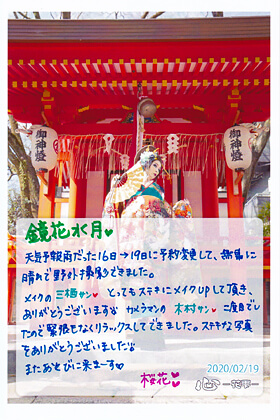 御神燈
御神燈
鏡花水月♥
天気予報雨だった16日→19日に予約変更して、無事に
晴れで野外撮影できました。
メイクの三栖サン♥ とってもステキにメイクUPして頂き、
ありがとうございます カメラマンの木村サン♥ 二度目でし
たので緊張もなくリラックスしてできました。ステキな写真
をありがとうございました
またあそびに来まーす♥
桜花
2020/02/19
心 -花夢-